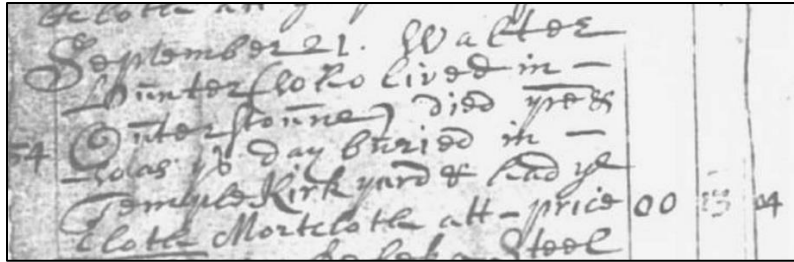 September 21. Walter
Hunter (who lived in –
Outerstoune) died yre &
was ys day buried in –
54 Temple Kirk yard & had ye
Cloth Mortcloth att – price 00 13 04
Steel